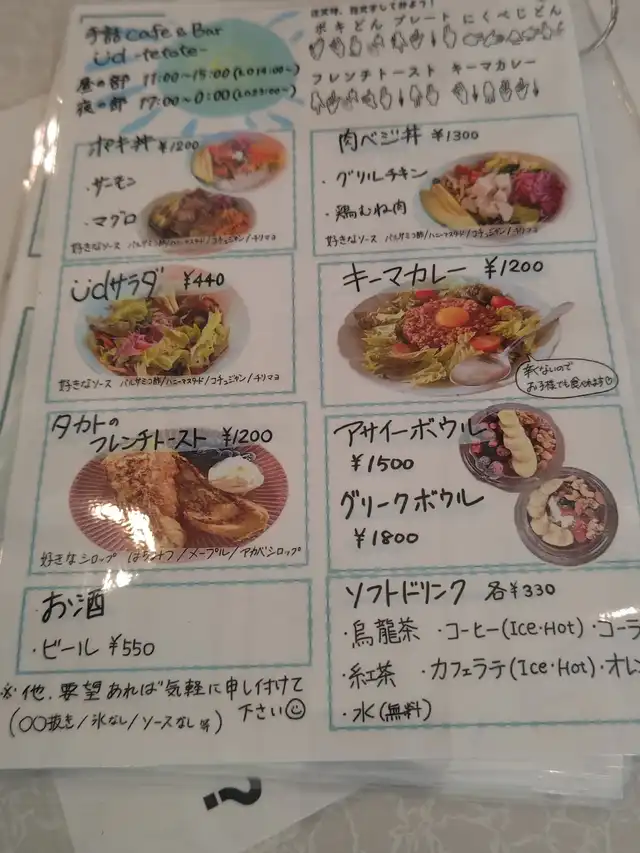 手話cafe&Bar
üd -tetote-
昼の部 11:00〜15:00(L.O14:00〜)
夜の部 17:00〜0:00(L.O23:00〜)
注文時、指文字してみよう!
ポキどん プレート にくべじどん
フレンチトースト キーマカレー
ポキ丼 ¥1200
・サーモン
・マグロ
好きなソース バルサミコ酢/ハニーマスタード/コチュジャン/チリマヨ
肉ベジ丼 ¥1300
・グリルチキン
・鶏むね肉
好きなソース バルサミコ酢/ハニーマスタード/コチュジャン/チリマヨ
üdサラダ ¥440
好きなソース バルサミコ酢/ハニーマスタード/コチュジャン/チリマヨ
キーマカレー ¥1200
辛くないので
お子様でも食べれます
タカトの
フレンチトースト ¥1200
好きなシロップ はちみつ/メープル/アガベシロップ
アサイーボウル
¥1500
グリークボウル
¥1800
お酒
・ビール ¥550
ソフトドリンク 各¥330
・烏龍茶 ・コーヒー(Ice・Hot) ・コーラ
・紅茶 ・カフェラテ(Ice・Hot) ・オレン
・水(無料)
※他、要望あれば気軽に申し付けて
下さい☺
(○○抜き/氷なし/ソースなし等)
?